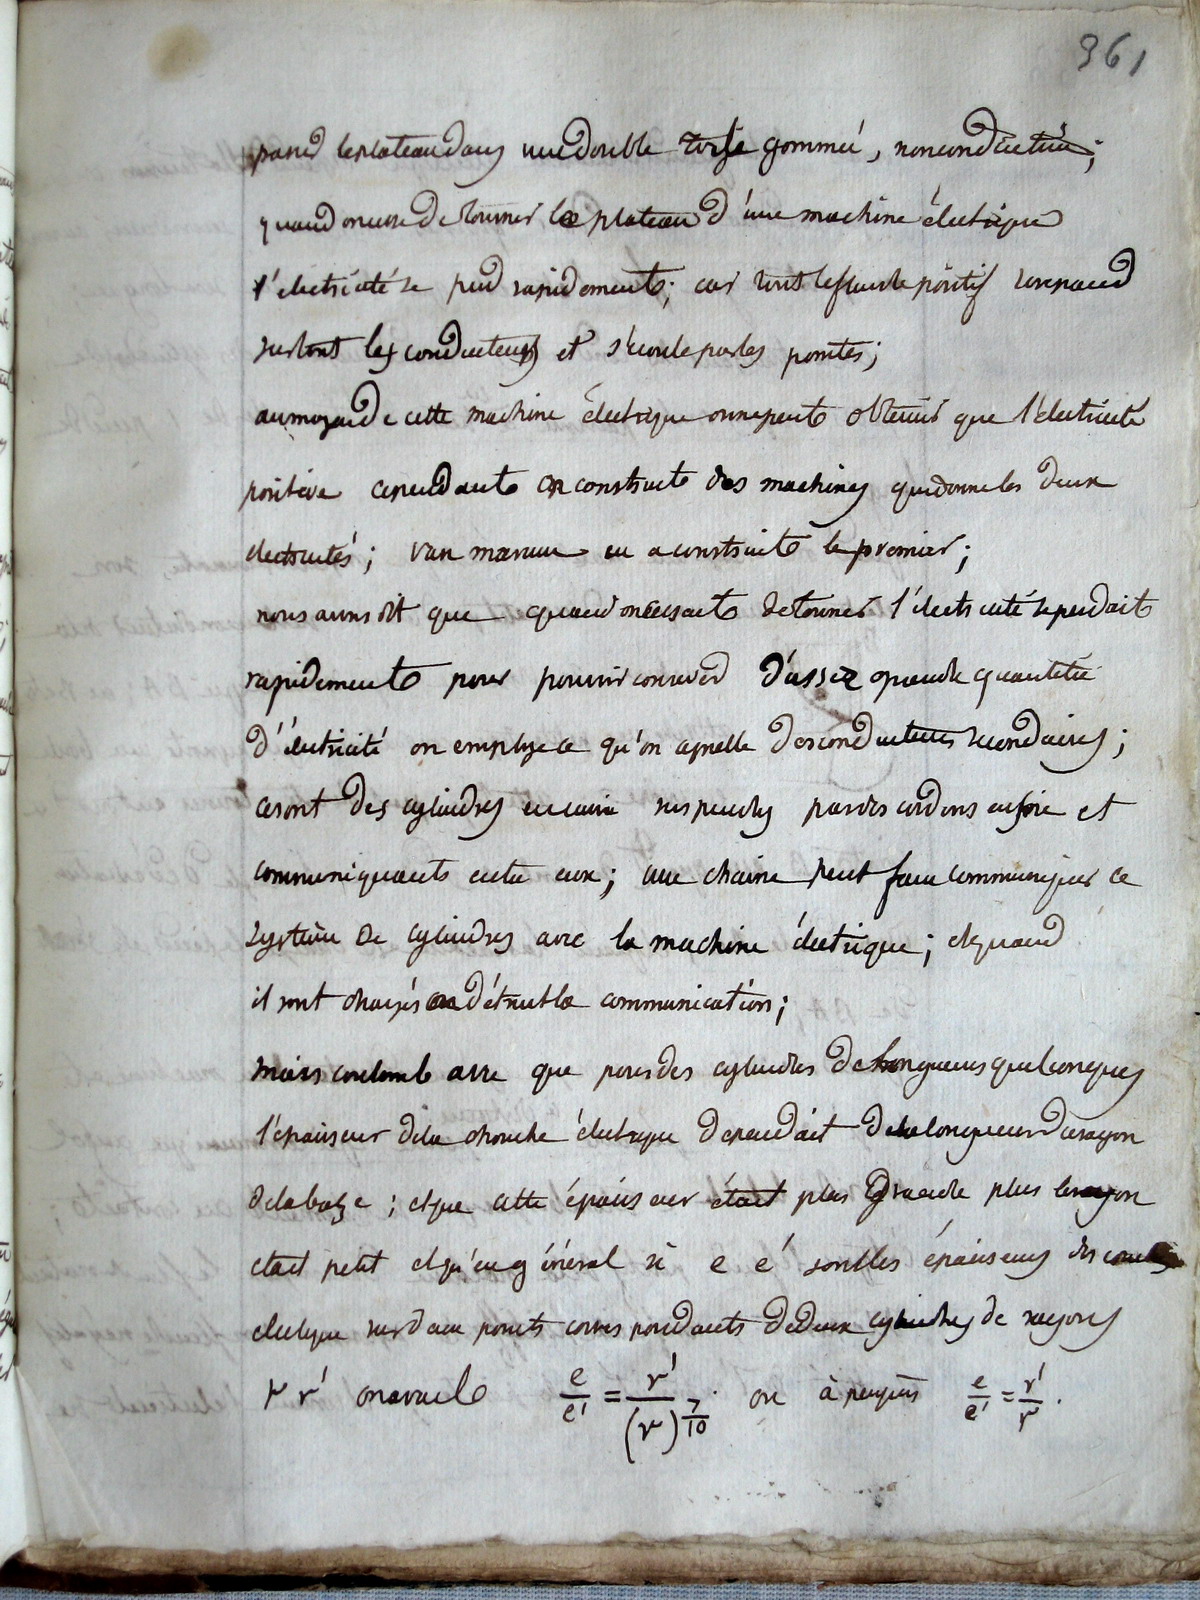 361
passer le plateau dans une double toile gommée, nonconductrice;
quand on cesse de tourner le plateau d'une machine électrique
l'électricité se perd rapidement; car tout le fluide positif se repand
sur tout les conducteurs et s'écoule par les pointes;
au moyen de cette machine électrique on ne peut obtenir que l'électricité
positive cependant on construit des machines qui donne les deux
electricités; van marum en a construite le premier;
nous avons dit que quand on cessait de tourner l'électricité se perdait
rapidement pour pouvoir conserver d'assez grande quantitée
d'électricité on employe ce qu'on apelle des conducteurs secondaires;
ce sont des cylindres en cuivre suspendus par des cordons en soie et
communiquants entre eux; une chaine peut faire communiquer ce
système de cylindres avec la machine électrique; et quand
il sont chargés on détruit la communication;
mais coulomb a vu que pour des cylindres de longueurs quelconques
l'épaisseur de la couche électrique dependait de la longueur du rayon
de la baze; et que cette épaisseur était plus grande plus le rayon
etait petit et qu'en général si e e' sont les épaisseurs des couches
electrique sur deux points correspondants de deux cylindres de rayons
r r' on avait e/e' = r'/(r)7/10. ou à peu près e/e' = r'/r.